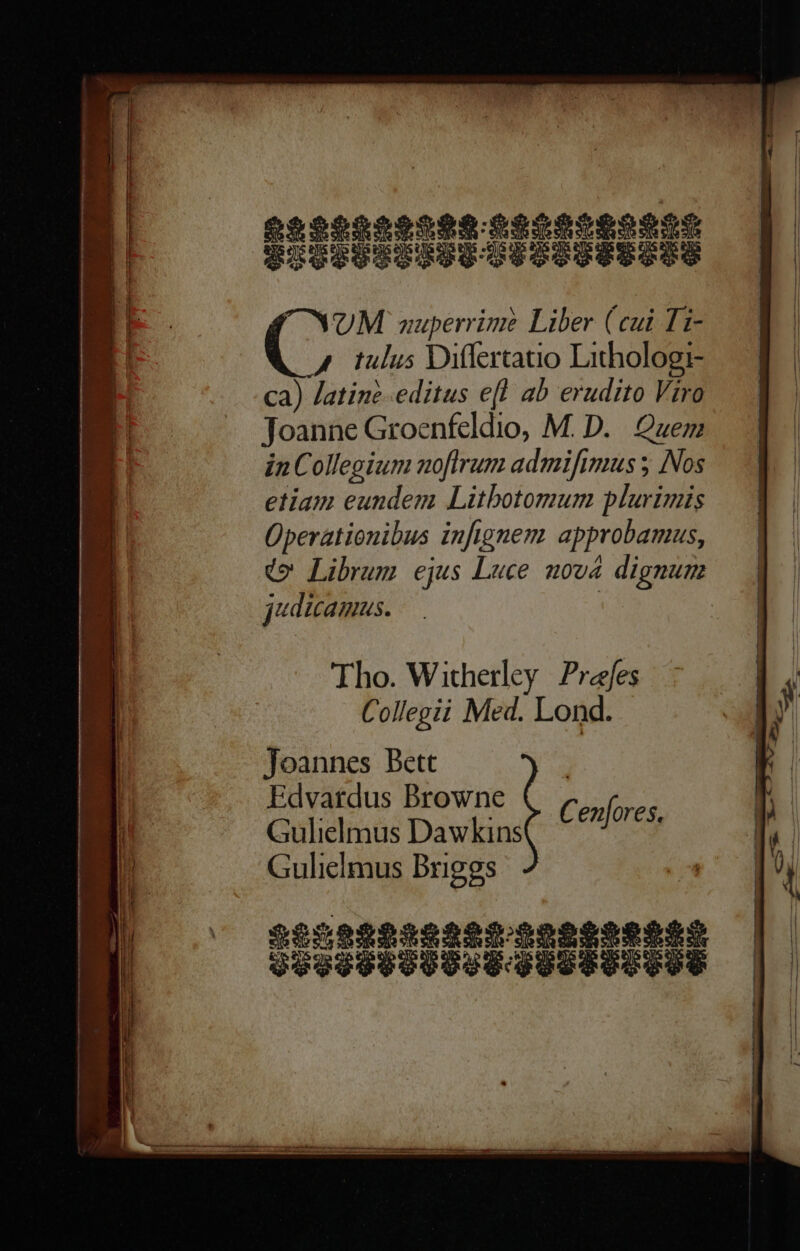 CUM nuperrimè Liber (cui Ti-
tulus Diſſertatio Lithologi-
ca) latinè editus eſt ab erudito Viro
Joanne Groenfeldio, M. D. Quem
in Collegium noſtrum admiſimus; Nos
etiam eundem Lithotomum plurimis
Operationibus inſignem approbamus,
& Librum ejus Luce novâ dignum
judicamus.
Tho. Witherley Præſes
Collegii Med. Lond.
Joannes Bett
Edvardus Browne
Cenſores.
Gulielmus Dawkins
Gulielmus Briggs